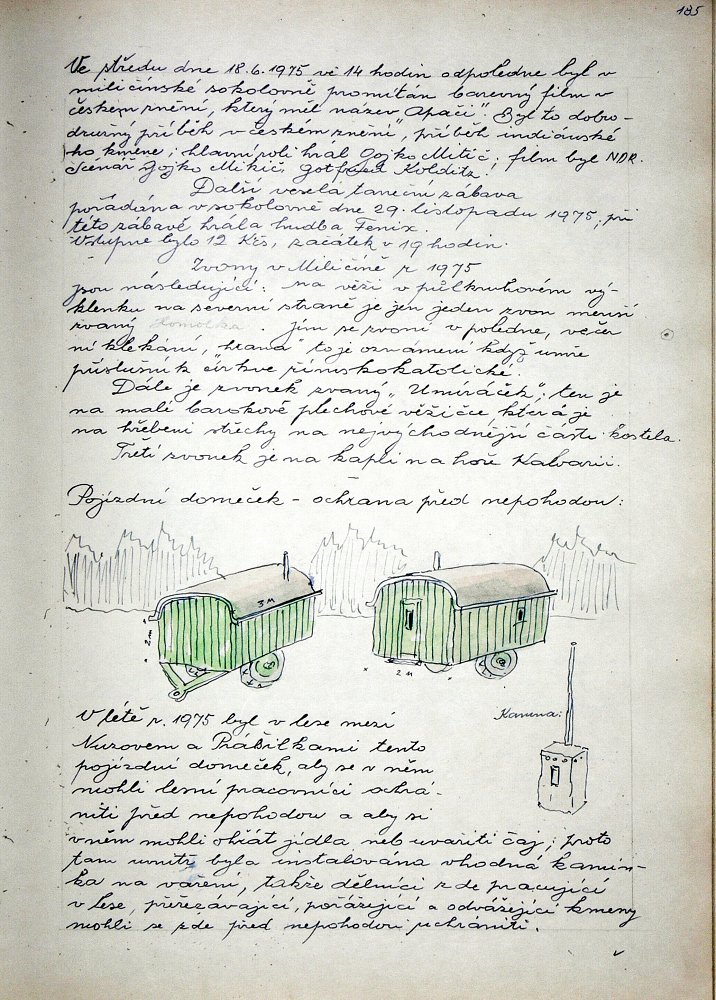 185
Ve středu dne 18.6.1975 ve 14 hodin odpoledne byl v
miličínské sokolovně promítán barevný film v
českém znění, který měl název „Apači". Byl to dobro-
družný příběh v českém znění, příběh indiánské
ho kmene; hlavní roli hrál Gojko Mitič; film byl NDR.
Scénář Gojko Mikič, Gotfried Kolditz!
Další veselá taneční zábava
pořádána v sokolovně dne 29. listopadu 1975; při
této zábavě hrála hudba Fenix.
Vstupné bylo 12 Kčs, začátek v 19 hodin.
Zvony v Miličíně r 1975
jsou následující: na věži v půlkruhovém vý-
klenku na severní straně je jen jeden zvon menší
zvaný Homolka. jím se zvoní v poledne, večer
ní klekání, „hrana" to je oznámení když umře
příslušník církve římskokatolické.
Dále je zvonek zvaný „Umíráček"; ten je
na malé barokové plechové věžičce která je
na hřebeni střechy na nejvýchodnější části kostela.
Třetí zvonek je na kapli na hoře Kalvarii.
Pojízdní domeček - ochrana před nepohodou:
3 M
2 M
2 M
Kamna:
V létě r. 1975 byl v lese mezi
Nuzovem a Prášilkami tento
pojízdní domeček, aby se v něm
mohli lesní pracovníci ochrá-
niti před nepohodou a aby si
v něm mohli ohřát jídla neb uvařiti čaj; proto
tam uvnitř byla instalována vhodná kamín-
ka na vaření, takže dělníci zde pracující
v lese, přeřezávající, porážející a odvážející kmeny
mohli se zde před nepohodou uchrániti.